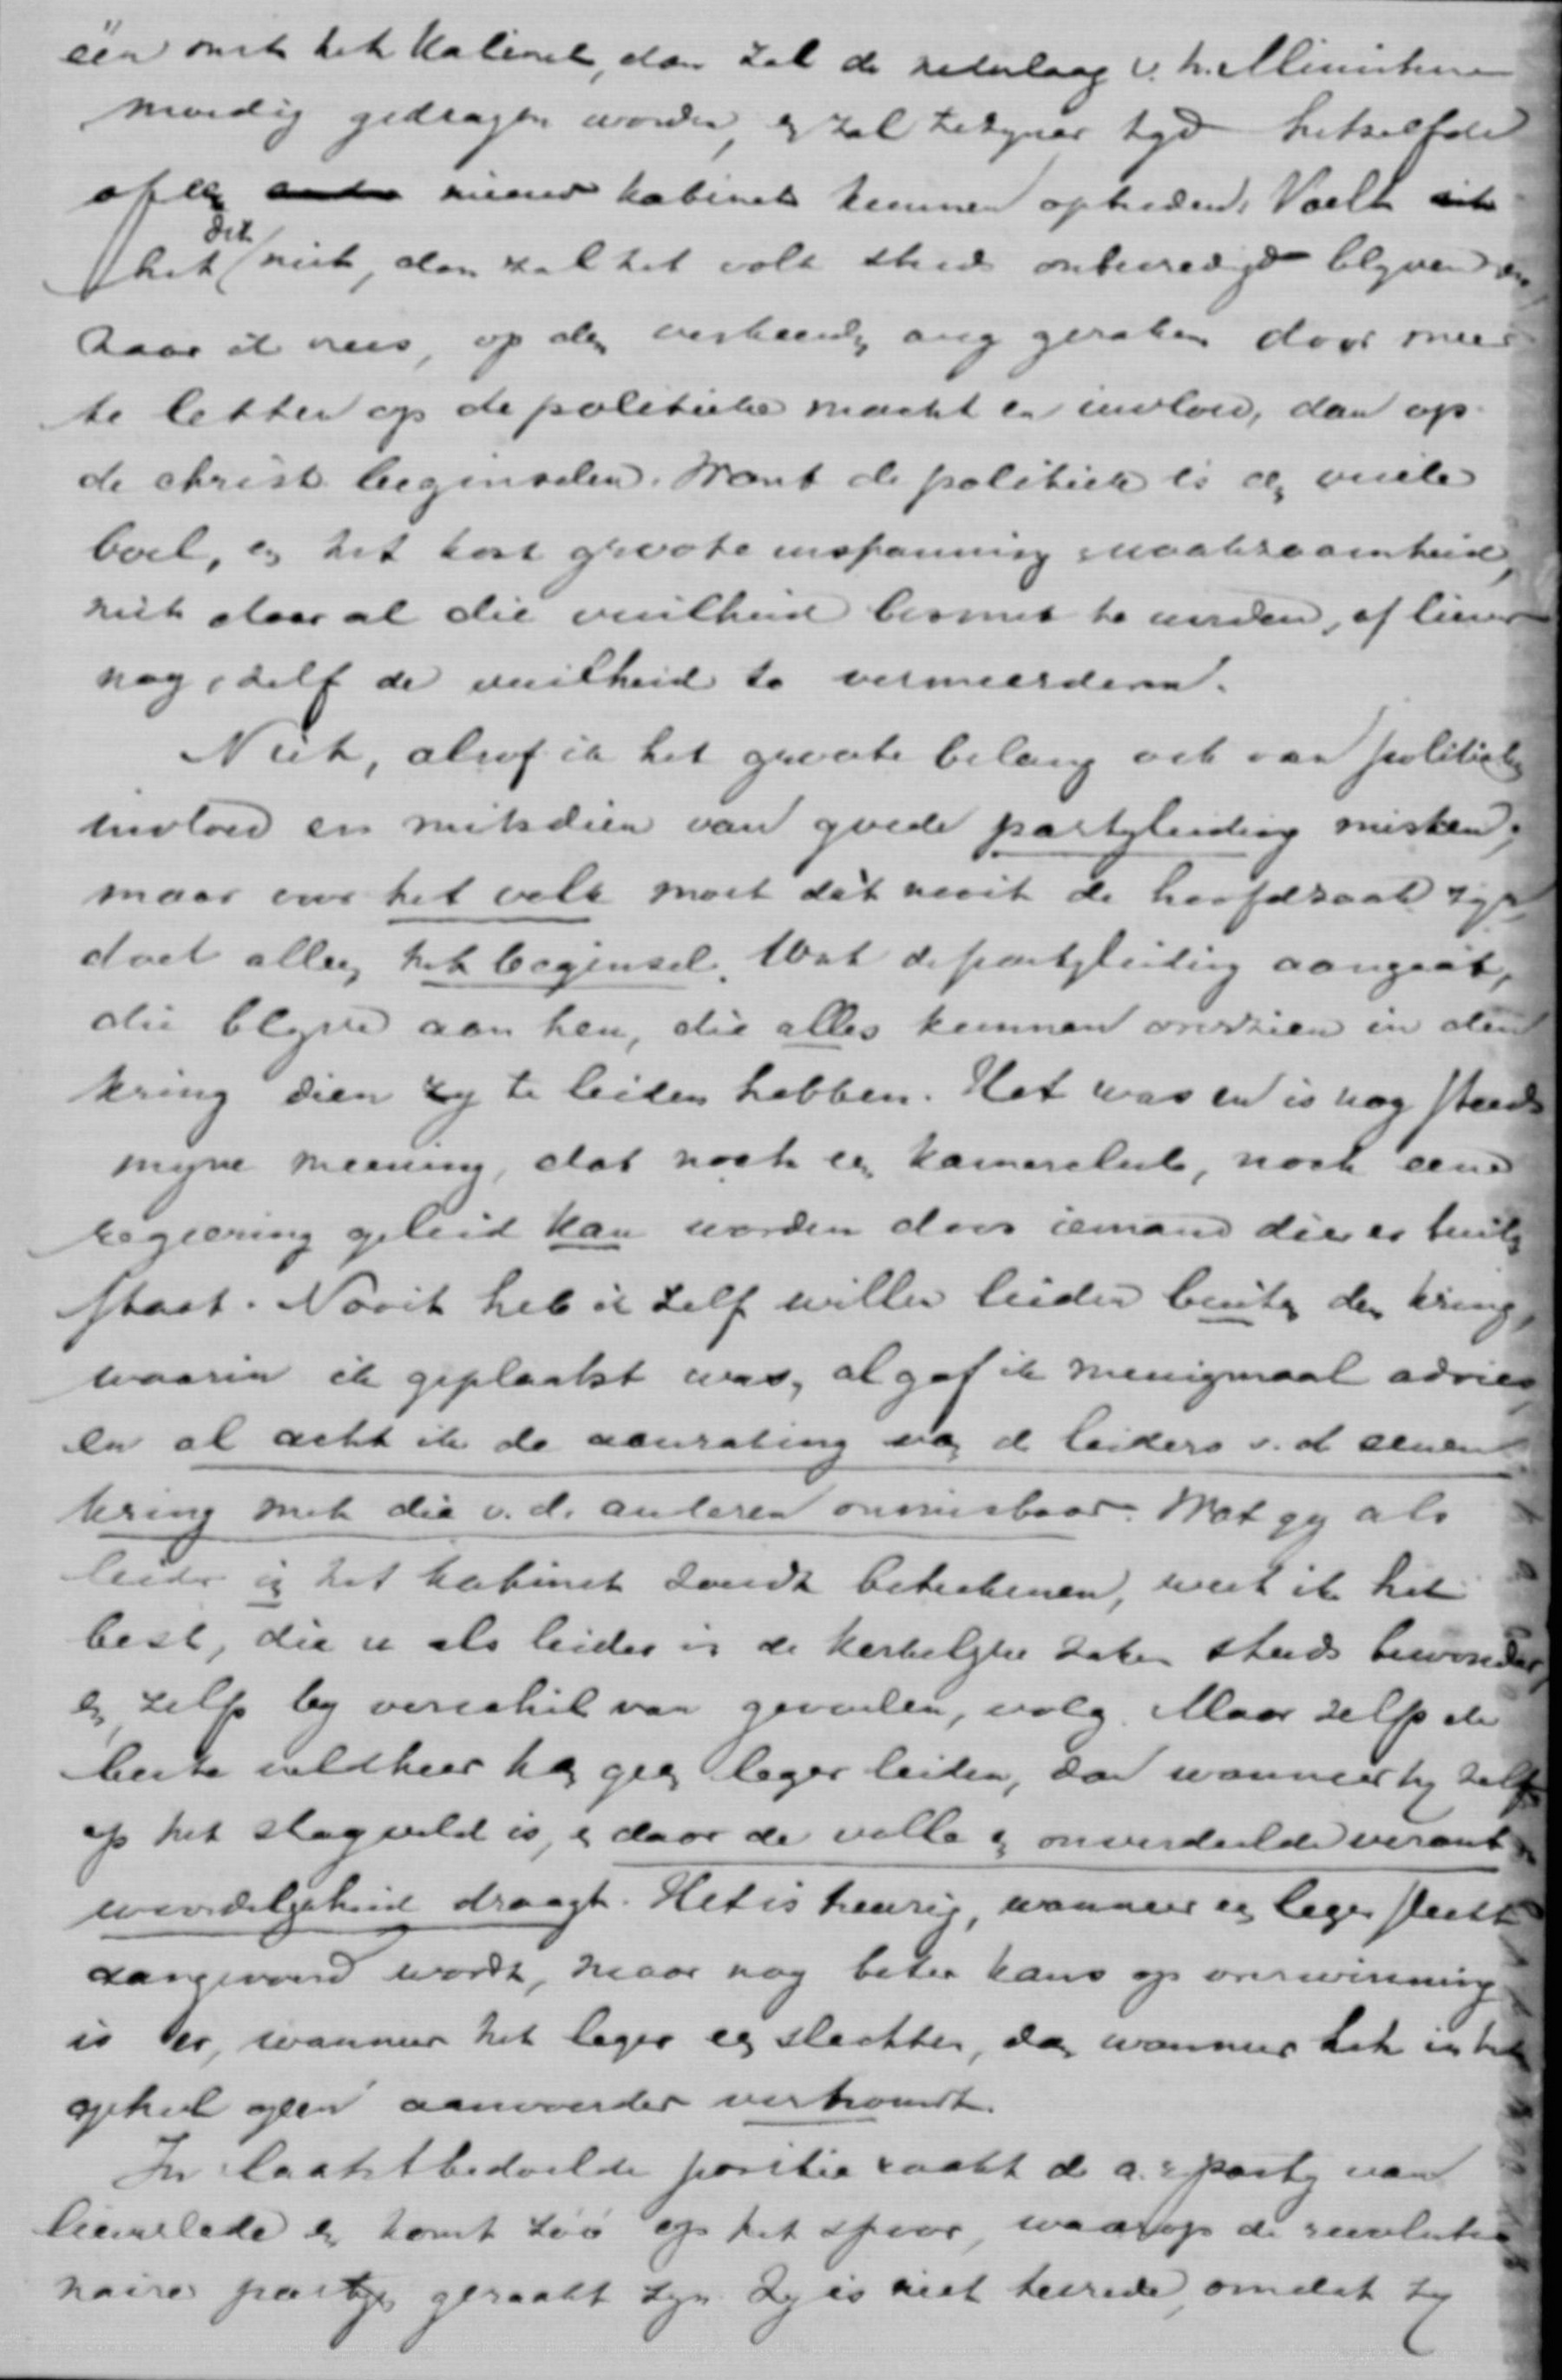 één met het Kabinet, dan zal de nederlaag v. h. Ministerie
moedig gedragen worden, en zal te zyner tyd hetzelfde
of een nieuw kabinet kunnen optreden. Voelt
het dit niet, dan zal het volk steeds onbevredigd blyven en
naar ik vrees, op den verkeerden weg geraken door meer
te letten op de politieke macht en invloed, dan op
de christ. beginselen. Want de politiek is een vuile
boel, en het kost groote inspanning en waakzaamheid,
niet door al die vuilheid besmet te worden, of liever
nog, zelf de vuilheid te vermeerderen.
Niet, alsof ik het groote belang ook van politieken
invloed en mitsdien van goede partyleiding misken;
maar voor het volk moet dàt nooit de hoofdzaak zyn
doch alleen het beginsel. Wat de partyleiding aangaat,
die blyve aan hen, die alles kunnen overzien in den
kring dien zy te leiden hebben. Het was en is nog steeds
myne meening, dat noch een kamerclub, noch eene
regeering geleid kan worden door iemand die er buiten
staat. Nooit heb ik zelf willen leiden buiten den kring,
waarin ik geplaatst was, al gaf ik menigmaal advies
en al acht ik de aanraking van de leiders v. d. eenen
kring met die v. d. anderen onmisbaar. Wat gy als
leider in het kabinet zoudt beteekenen, weet ik het
best, die u als leider in de kerkelyke zaken steeds bewonder,
en, zelfs by verschil van gevoelen, volg. Maar zelfs de
beste veldheer kan geen leger leiden, dan wanneer hy zelf
op het slagveld is, en daar de volle en onverdeelde verant
woordelykheid draagt. Het is treurig, wanneer een leger slecht
aangevoerd wordt, maar nog beter kans op overwinning
is er, wanneer het leger een slechten, dan wanneer het in het
geheel geen aanvoerder vertrouwt.
In laatstbedoelde positie raakt de a. r. party van
lieverlede en komt zóó op het spoor, waarop de revolutio
naire partyen geraakt zyn. Zy is niet tevreden, omdat zy